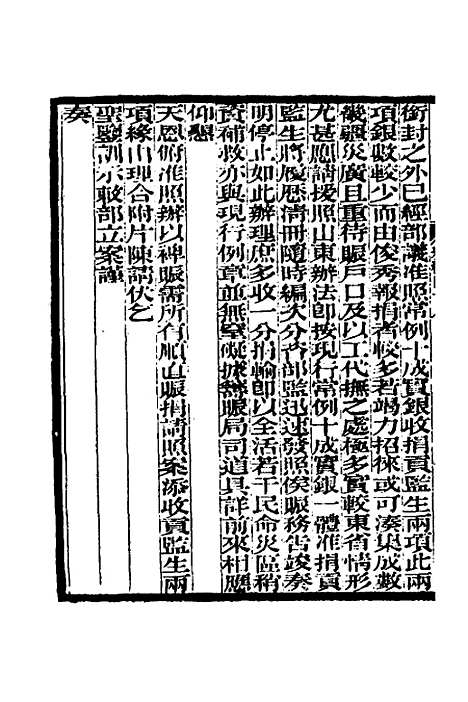 銜封之外已經部議准照常例十成實銀收捐貢監生兩項此兩
項銀數較少而由俊秀報捐者較多若竭力招徠或可湊集成數
畿疆災廣且重待賑戶口及以工代撫之處極多實較東省情形
尤甚應請援照山東辦法即按現行常例十成實銀一體准捐貢
監生將履歷清冊隨時編次分咨部監迅速發照俟賑務告竣奏
明停止如此辦理庶多收一分捐輸即以全活若干民命災區稍
資補救亦與現行例章並無窒礙據籌賑局司道具詳前來相應
仰懇
天恩俯准照辦以裨賑需所有順直賑捐請照案添收貢監生兩
項緣由理合附片陳請伏乞
聖鑒訓示敕部立案謹
奏